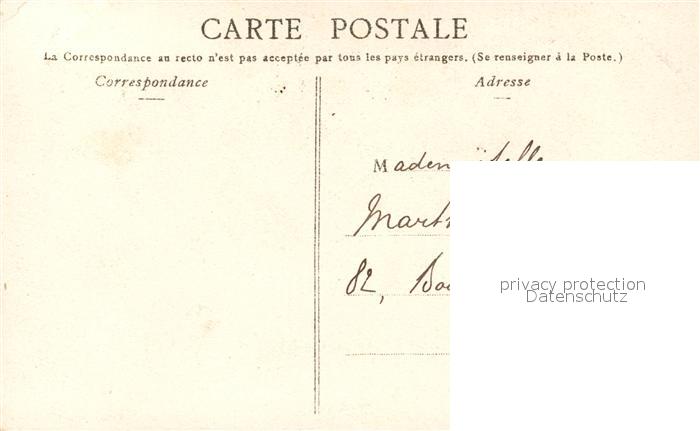 CARTE POSTALE
La Correspondance au recto n'est pas acceptée par tous les pays étrangers. (Se renseigner à la Poste.)
Correspondance
Adresse
Mademoiselle
82,
privacy protection
Datenschutz